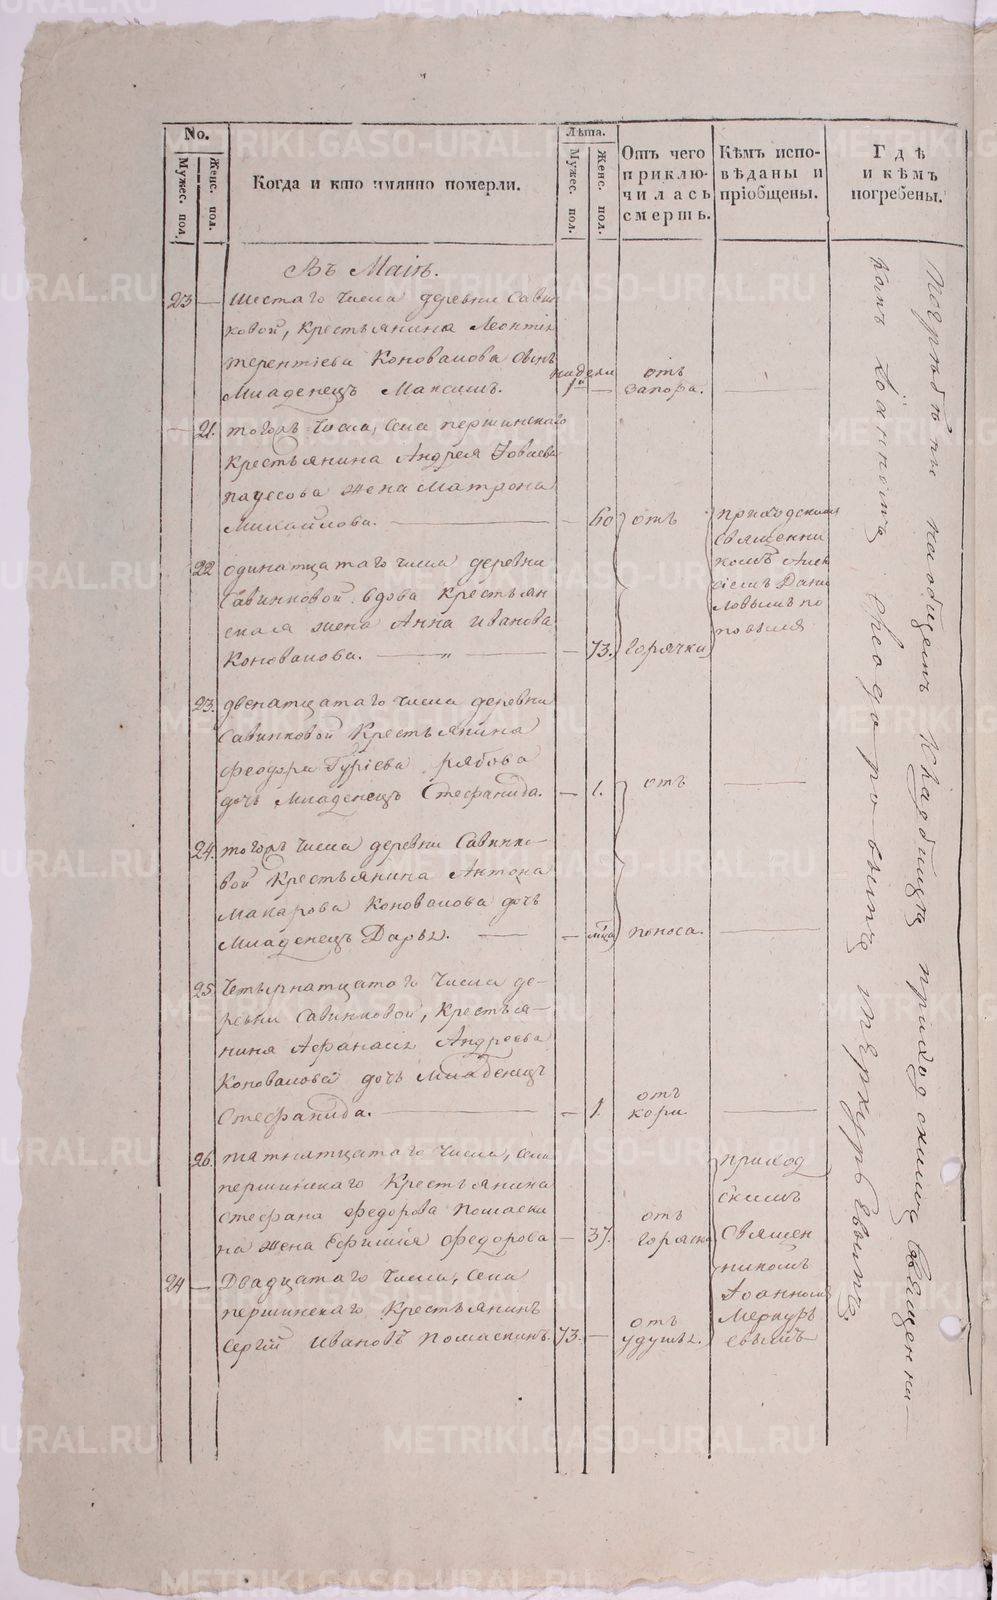 No.
Мужес. пол.
Женс. пол.
Когда и кто имянно померли.
Лѣта.
Мужес. пол.
Женс. пол.
Отъ чего приклю-
чилась
смерть.
Кѣмъ испо-
вѣданы и
пріобщены.
Гдѣ
и кѣмъ
погребены.
Въ Маіѣ.
23 — шестаго числа деревни Савин
ковой, крестьянина Леонтія
терентіева Коновалова сынъ
младенецъ Максимъ. недели 1 — отъ запора.
— 21. тогожъ числа, села першинскаго
крестьянина Андрея
жена Матрона
Михайлова. — 60 отъ
приходскимъ
священни
комъ Алек
сіемъ Дани
ловымъ по
повымя
22 одинатцатаго числа деревни
Савинковой вдова крестьян
ская жена Анна иванова
Коновалова. — " — — 73. горячки
23. двенатцатаго числа деревни
Савинковой крестьянина
феодора Гуріева рябова
дочь младенецъ Стефанида. — 1. отъ
24. тогожъ числа деревни Савинко-
вой крестьянина Антона
Макарова Коновалова дочь
младенецъ Дарья. — — мца поноса.
25 четырнатцатого числа де-
ревни Савинковой, крестья-
нина Афанасія Андреева
Коновалова дочь младенецъ
Стефанида. — — 1. отъ кори
26. пятнатцатаго числа, села
першинскаго крестьянина
стефана федорова помаски
на жена Ефимія федорова — 37. отъ горячки
приход
скимъ
Священ
никомъ
Іоанномъ
Меркурь
евымъ
24 — Двадцатаго числа, села
першинскаго крестьянинъ
сергій Ивановъ помаскинъ. 73. — отъ удушья.
Погребены на общемъ кладбищѣ приходскимъ священни-
комъ Іоанномъ Феодоровымъ Меркурьевымъ.
METRIKI.GASO-URAL.RU